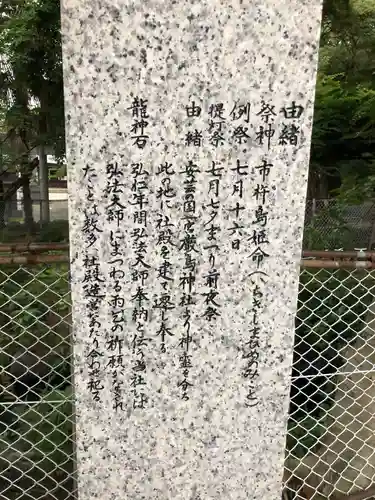 由緒
祭神 市杵島姫命(いちきしまひめのみこと)
例祭 七月十六日
提灯祭 七月七夕まつり前夜祭
由緒 安芸国宮嚴島神社より神霊を分ち
此の地に社殿を建て遷し奉る
龍神石 弘仁年間弘法大師奉納と伝う当社には
弘法大師にまつわる雨乞の祈願がなされ
たとは数多 社殿造営にあたり合わせ祀る